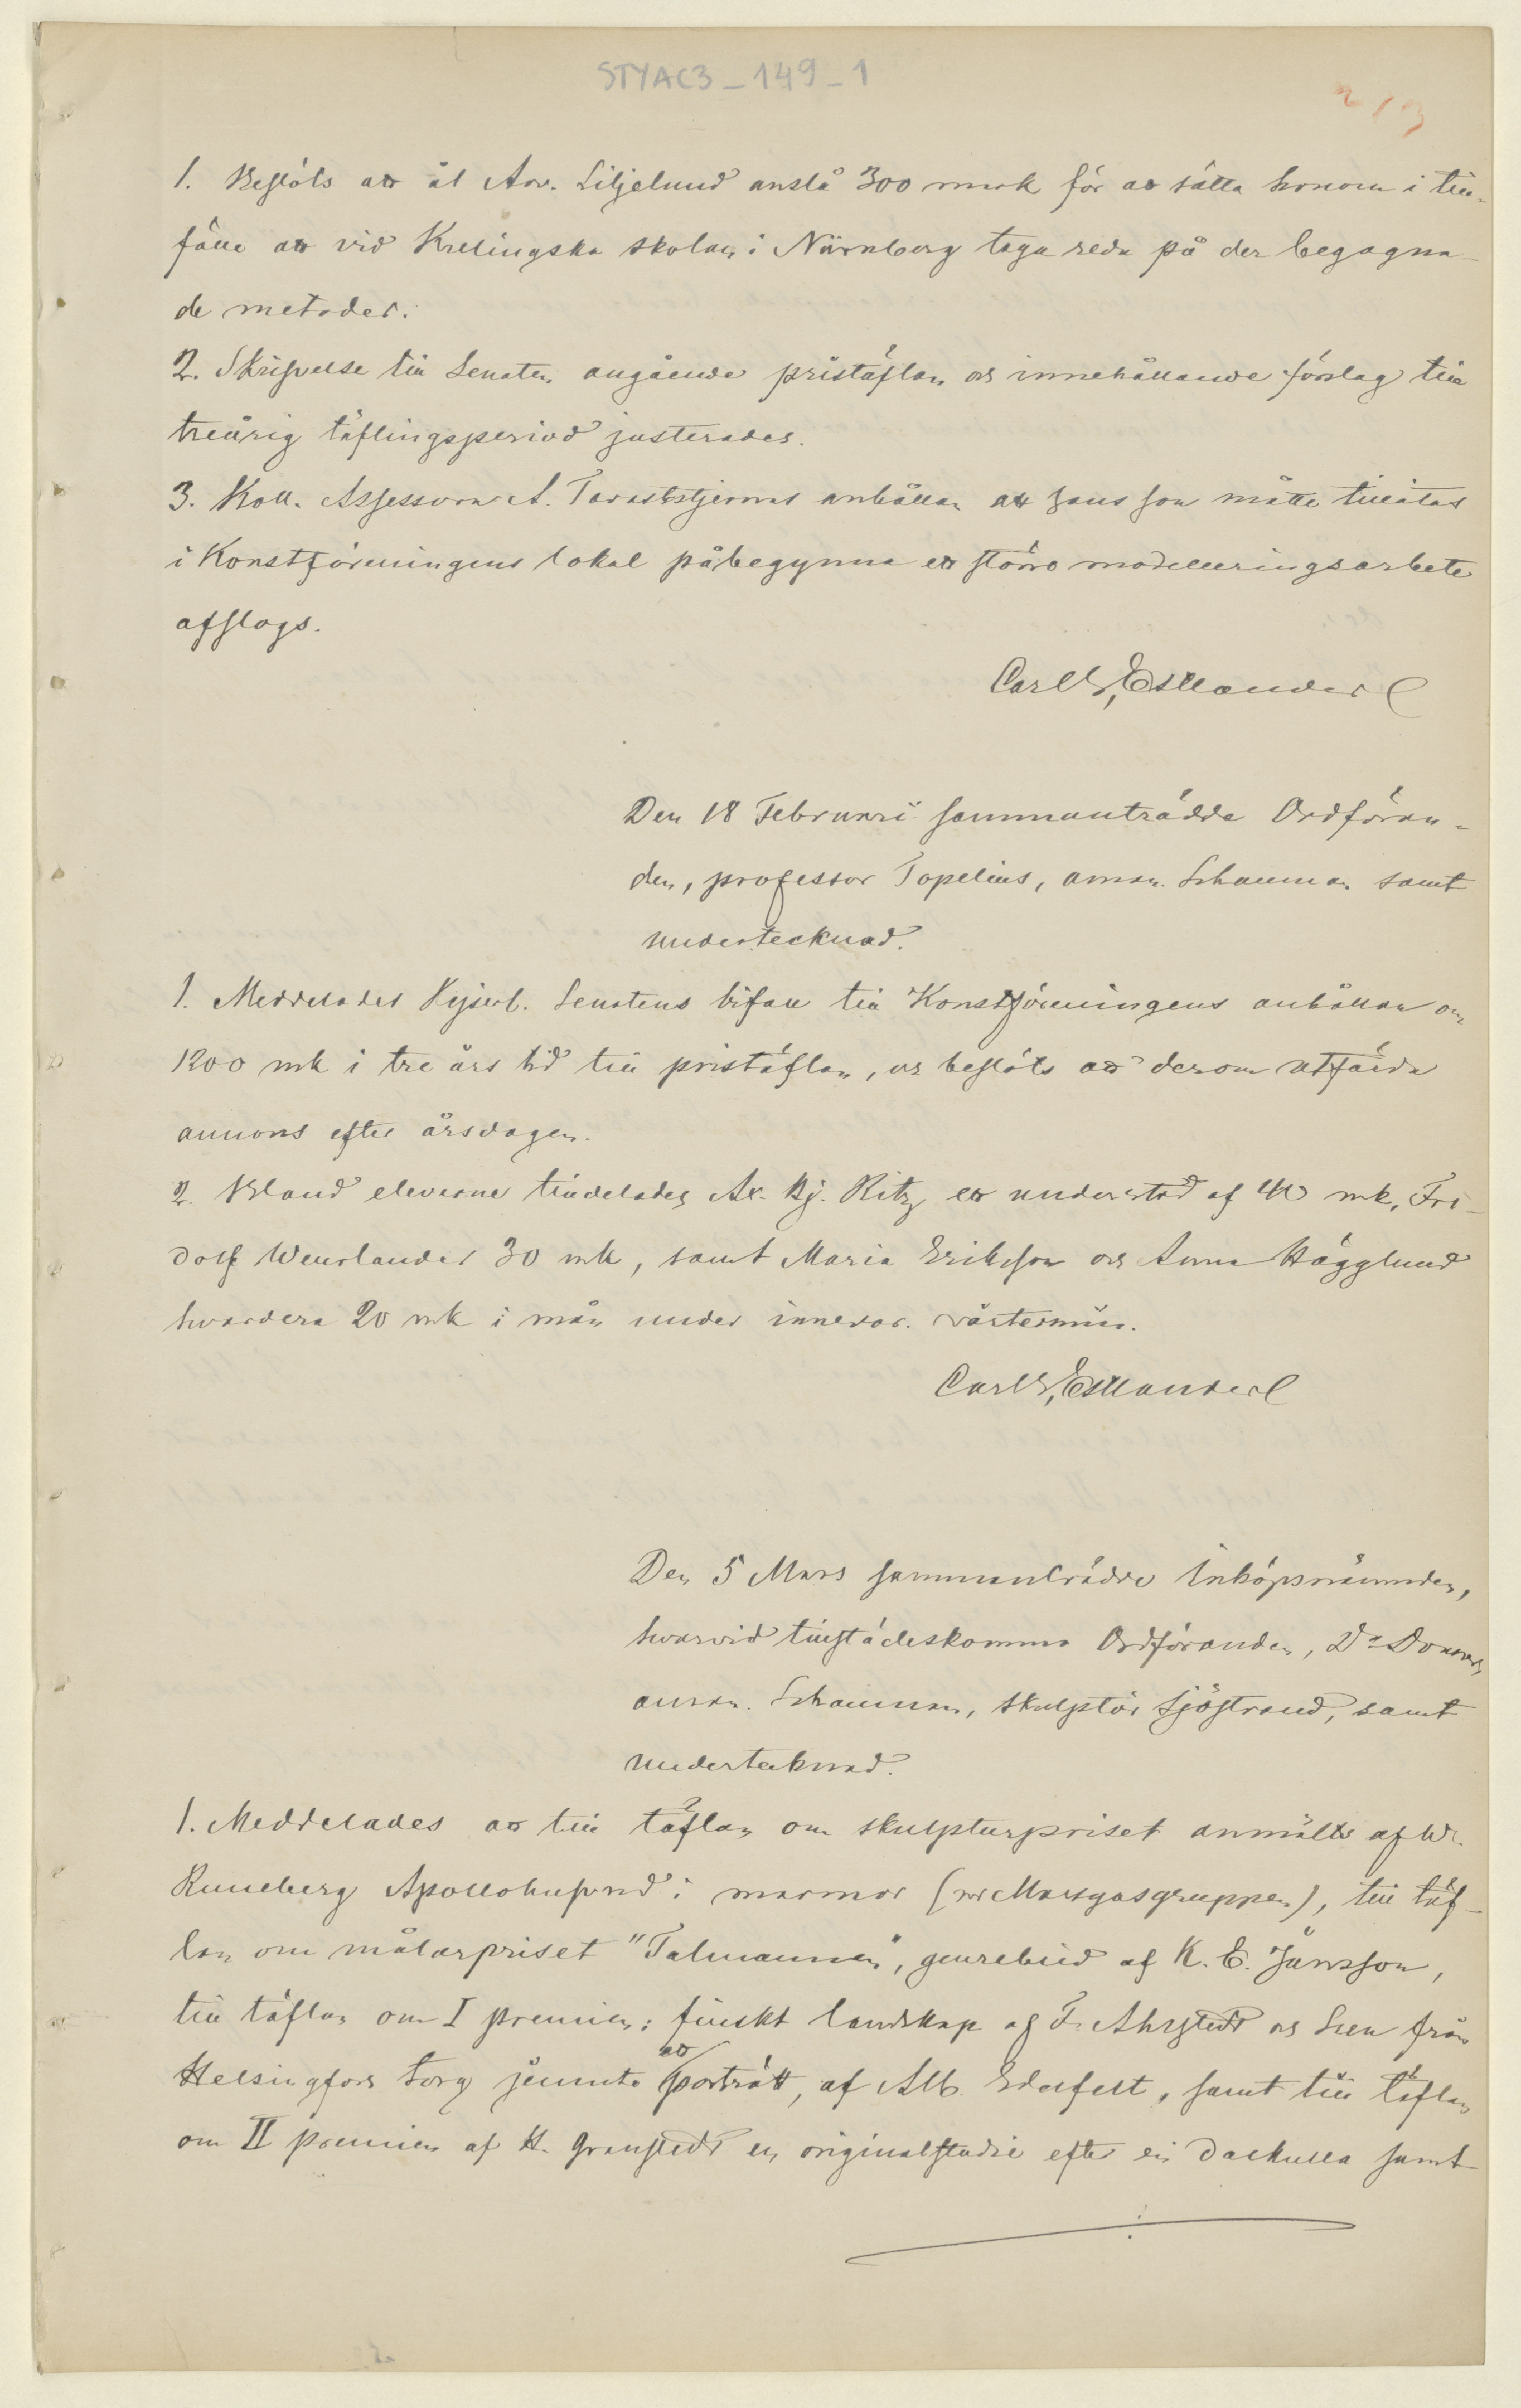 STYAC3_149_1
213
1. Beslöts att åt Arv. Liljelund anslå 300 mark för att sätta honom i till-
fälle att vid Krelingska skolan i Nürnberg taga reda på der begagna-
de metoder.
2. Skrifvelse till Senaten angående pristäflan och innehållande förslag till
treårig täflingsperiod justerades.
3. Koll. Assessorn A. Tavaststjernas anhållan att hans son måtte tillåtas
i Konstföreningens lokal påbegynna ett större modelleringsarbete
afslogs.
Carl G. Estlander
Den 18 Februari sammanträdde Ordföran-
den, professor Topelius, aman. Schauman samt
undertecknad.
1. Meddelades Kejserl. Senatens bifall till Konstföreningens anhållan om
1200 mk i tre års tid till pristäflan, och beslöts att derom utfärda
annons efter årsdagen.
2. Bland eleverne tilldelades Ax. Bj. Ritz ett understöd af 40 mk, Fri-
dolf Weurlander 30 mk, samt Maria Erikson och Anna Hägglund
hvardera 20 mk i mån under innevar. vårtermin.
Carl G. Estlander
Den 5 Mars sammanträdde Inköpsnämnden,
hvarvid tillstädeskommo Ordföranden, Dr Donner,
aman. Schauman, skulptör Sjöstrand, samt
undertecknad.
1. Meddelades att till täflan om skulpturpriset anmälts af W.
Runeberg Apollohufvud i marmor (ur Marsyasgruppen), till täf-
lan om målarpriset "Talmannen", genrebild af K. E. Jansson,
till täflan om I premien: finskt landskap af F. Ahlstedt och Scen från
Helsingfors torg jämnte ett porträtt, af Alb. Edelfelt, samt till täflan
om II premien af H. Granstedt en originalstudie efter en dalkulla samt